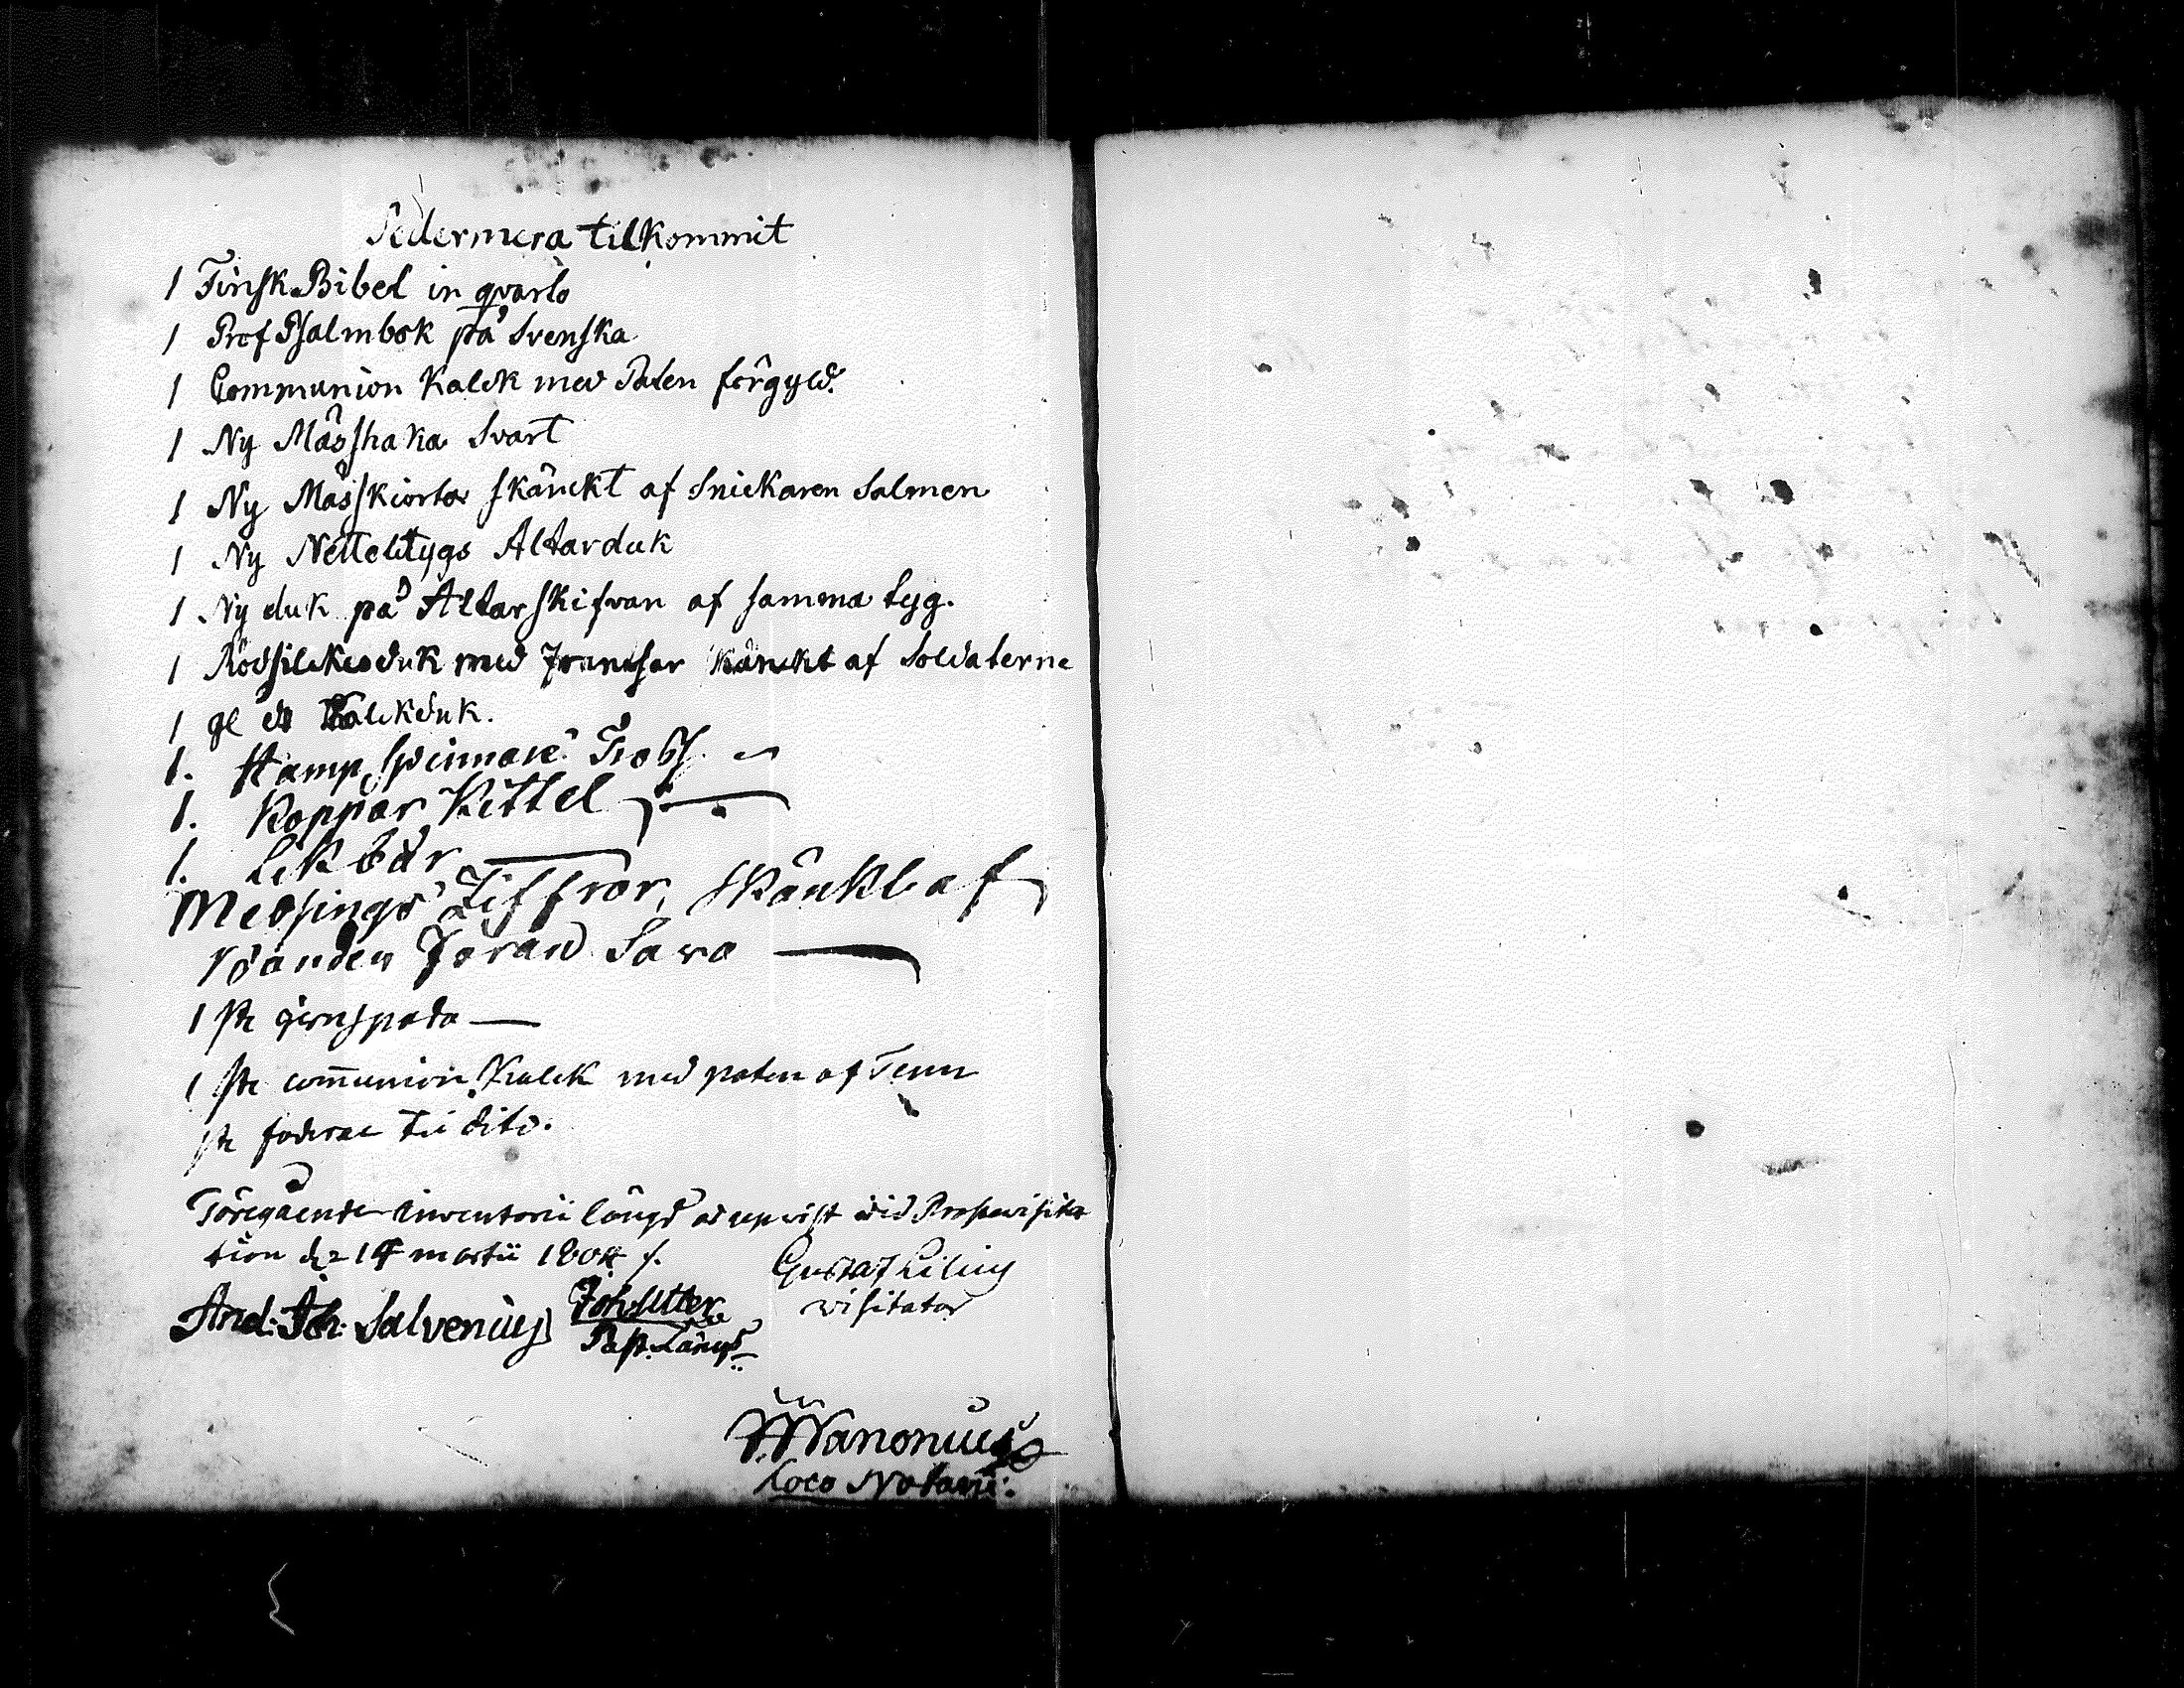 Sedermera tilkommit
1 Finsk Bibel in qvarto
1 Prof Psalmbok på Svenska
1 Communion Kalck med Paten förgyld.
1 Ny Mässhaka Svart
1 Ny Mässkiorta skänckt af Snickaren Salmen
1 Ny Nettelltygs Altarduk
1 Ny duk på Altarskifvan af samma tyg.
1 Rödsilckesduk med Frantsar skänckt af Soldaterne
1 gl Kalckduk.
1. Stamp
1. Koppar Kittel
1. Likbår
Messings Ziffror, skänkt af
Bonden Jöran Savo
1 st jernspada
1 st com̄union Kalck med paten af Tenn
st foderal til dito.
Föregående Inventarii längd är upvist vid Prostevisita
tion d. 14 martii 1804
Gustaf Lilius
visitator
And. Joh. Salvenius
Joh. Utter
Past. Längd
Wanonius
Loco Notarii.